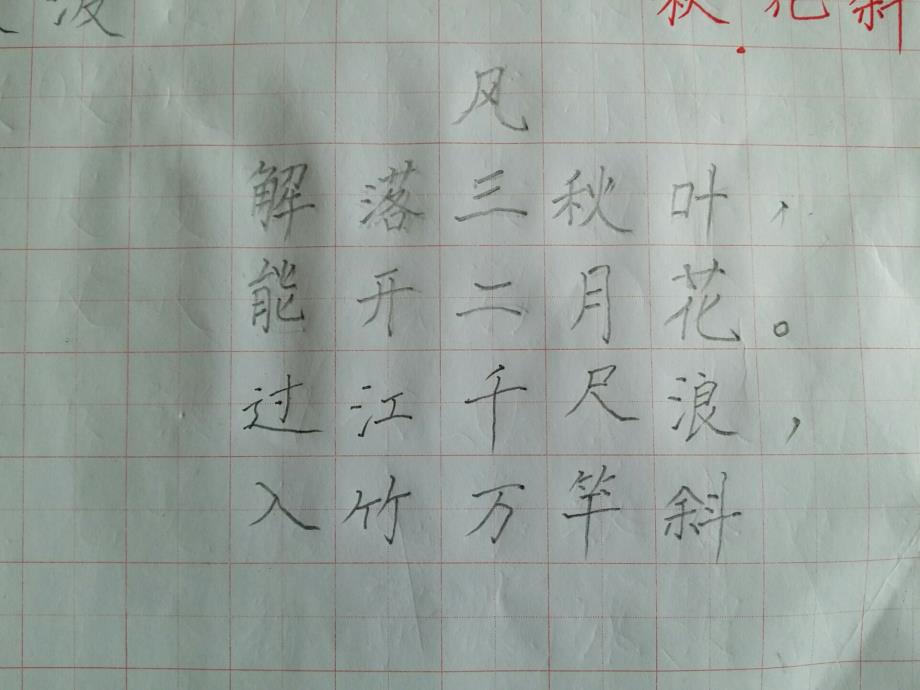 秋花斜
风
解落三秋叶，
能开二月花。
过江千尺浪，
入竹万竿斜